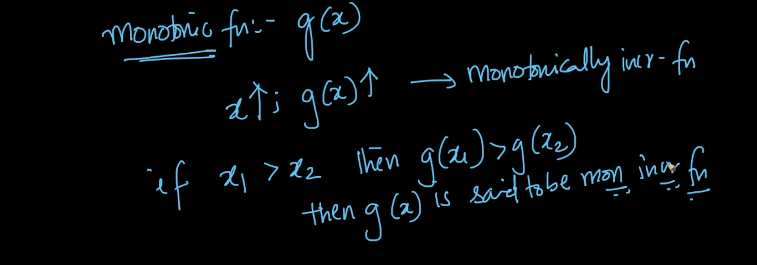 monotonic fn:- g(x)
x↑; g(x)↑ → monotonically incr- fn
if x₁ > x₂ then g(x₁) > g(x₂)
then g(x) is said to be mon. incr. fn